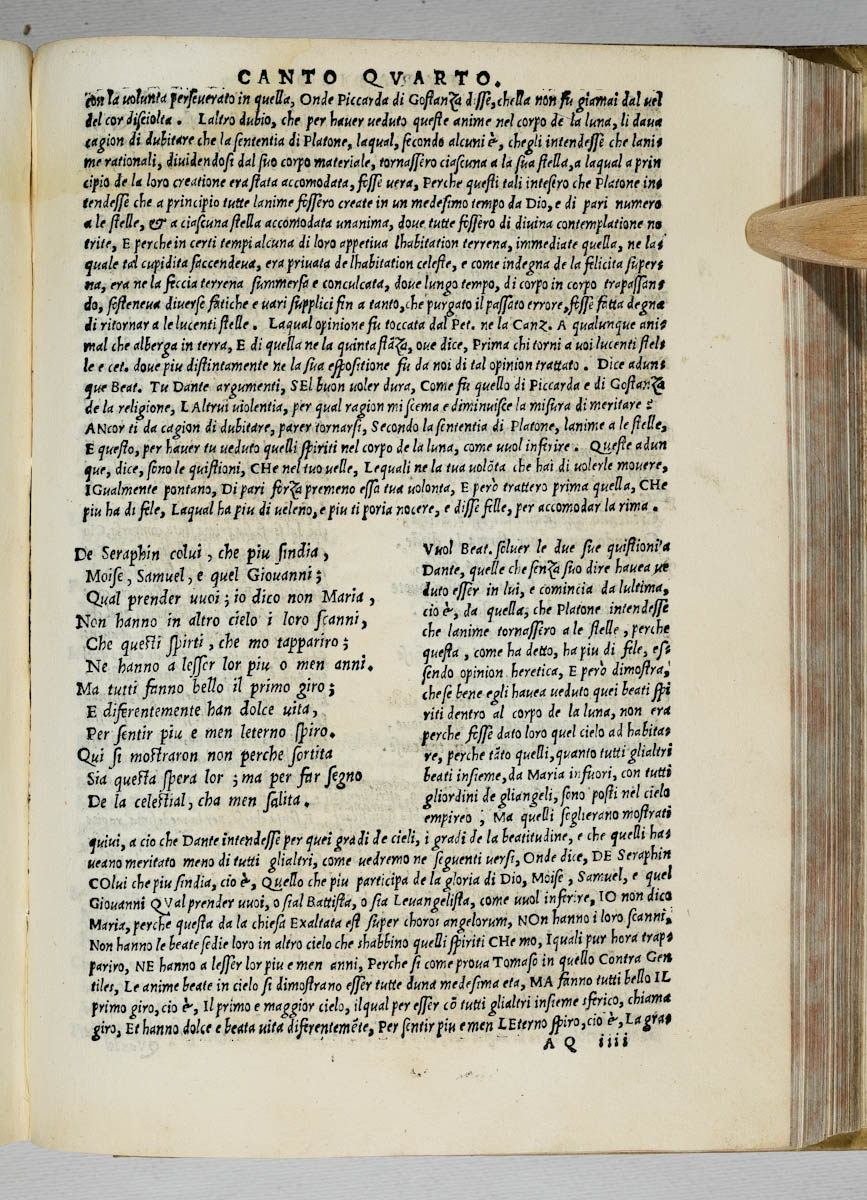 CANTO QVARTO.
con la uolunta perseuerato in quella, Onde Piccarda di Gostanza disse, chella non fu giamai dal uel
del cor disciolta. Laltro dubio, che per hauer ueduto queste anime nel corpo de la luna, li daua
cagion di dubitare che la sententia di Platone, laqual, secondo alcuni è, chegli intendesse che lani=
me rationali, diuidendosi dal suo corpo materiale, tornassero ciascuna a la sua stella, a laqual a prin
cipio de la loro creatione era stata accomodata, fosse uera, Perche questi tali intesero che Platone in=
tendesse che a principio tutte lanime fossero create in un medesimo tempo da Dio, e di pari numero
a le stelle, & a ciascuna stella accomodata unanima, doue tutte fossero di diuina contemplatione no
trite, E perche in certi tempi alcuna di loro appetiua lhabitation terrena, immediate quella, ne la=
quale tal cupidita saccendeua, era priuata de lhabitation celeste, e come indegna de la felicita super=
na, era ne la feccia terrena summersa e conculcata, doue lungo tempo, di corpo in corpo trapassan=
do, sosteneua diuerse fatiche e uari supplici fin a tanto, che purgato il passato errore, fosse fatta degna
di ritornar a le lucenti stelle. Laqual opinione fu toccata dal Pet. ne la Canz. A qualunque ani=
mal che alberga in terra, E di quella ne la quinta stãza, oue dice, Prima chi torni a uoi lucenti stel=
le e cet. doue piu distintamente ne la sua espositione fu da noi di tal opinion trattato. Dice adun=
que Beat. Tu Dante argumenti, SEl buon uoler dura, Come fu quello di Piccarda e di Gostanza
de la religione, LAltrui uiolentia, per qual ragion mi scema e diminuisce la misura di meritare?
ANcor ti da cagion di dubitare, parer tornarsi, Secondo la sententia di Platone, lanime a le stelle,
E questo, per hauer tu ueduto quelli spiriti nel corpo de la luna, come uuol inferire. Queste adun
que, dice, sono le quistioni, CHe nel tuo uelle, Lequali ne la tua volõta che hai di uolerle mouere,
IGualmente pontano, Di pari forza premeno essa tua uolonta, E però trattero prima quella, CHe
piu ha di fele, Laqual ha piu di ueleno, e piu ti poria nocere, e disse felle, per accomodar la rima.
De Seraphin colui, che piu sindia,
Moise, Samuel, e quel Giouanni;
Qual prender uuoi; io dico non Maria,
Non hanno in altro cielo i loro scanni,
Che questi spirti, che mo tappariro;
Ne hanno a lesser lor piu o men anni.
Ma tutti fanno bello il primo giro;
E diferentemente han dolce uita,
Per sentir piu e men leterno spiro.
Qui si mostraron non perche sortita
Sia questa spera lor; ma per far segno
De la celestial, cha men salita.
Vuol Beat. soluer le due sue quistioni a
Dante, quelle che senza suo dire hauea ue
duto esser in lui, e comincia da lultima,
cio è, da quella, che Platone intendesse
che lanime tornassero a le stelle, perche
questa, come ha detto, ha piu di fele, es=
sendo opinion heretica, E però dimostra,
che se bene egli hauea ueduto quei beati spi
riti dentro al corpo de la luna, non era
perche fosse dato loro quel cielo ad habita=
re, perche tãto quelli, quanto tutti glialtri
beati insieme, da Maria infuori, con tutti
gliordini de gliangeli, sono posti nel cielo
empireo; Ma quelli seglierano mostrati
quiui, a cio che Dante intendesse per quei gradi de cieli, i gradi de la beatitudine, e che quelli ha=
ueano meritato meno di tutti glialtri, come uedremo ne seguenti uersi, Onde dice, DE Seraphin
COlui che piu sindia, cio è, Quello che piu participa de la gloria di Dio, Moise, Samuel, e quel
Giouanni QVal prender uuoi, o sial Battista, o sia Leuangelista, come uuol inferire, IO non dico
Maria, perche questa da la chiesa Exaltata est super choros angelorum, NOn hanno i loro scanni,
Non hanno le beate sedie loro in altro cielo che shabbino quelli spiriti CHe mo, Iquali pur hora trap=
pariro, NE hanno a lesser lor piu e men anni, Perche si come proua Tomaso in quello Contra Gen
tiles, Le anime beate in cielo si dimostrano esser tutte duna medesima eta, MA fanno tutti bello IL
primo giro, cio è, Il primo e maggior cielo, ilqual per esser cõ tutti glialtri insieme sferico, chiama
giro, Et hanno dolce e beata uita diferentemẽte, Per sentir piu e men LEterno spiro, cio è, La gra=
A Q iiii